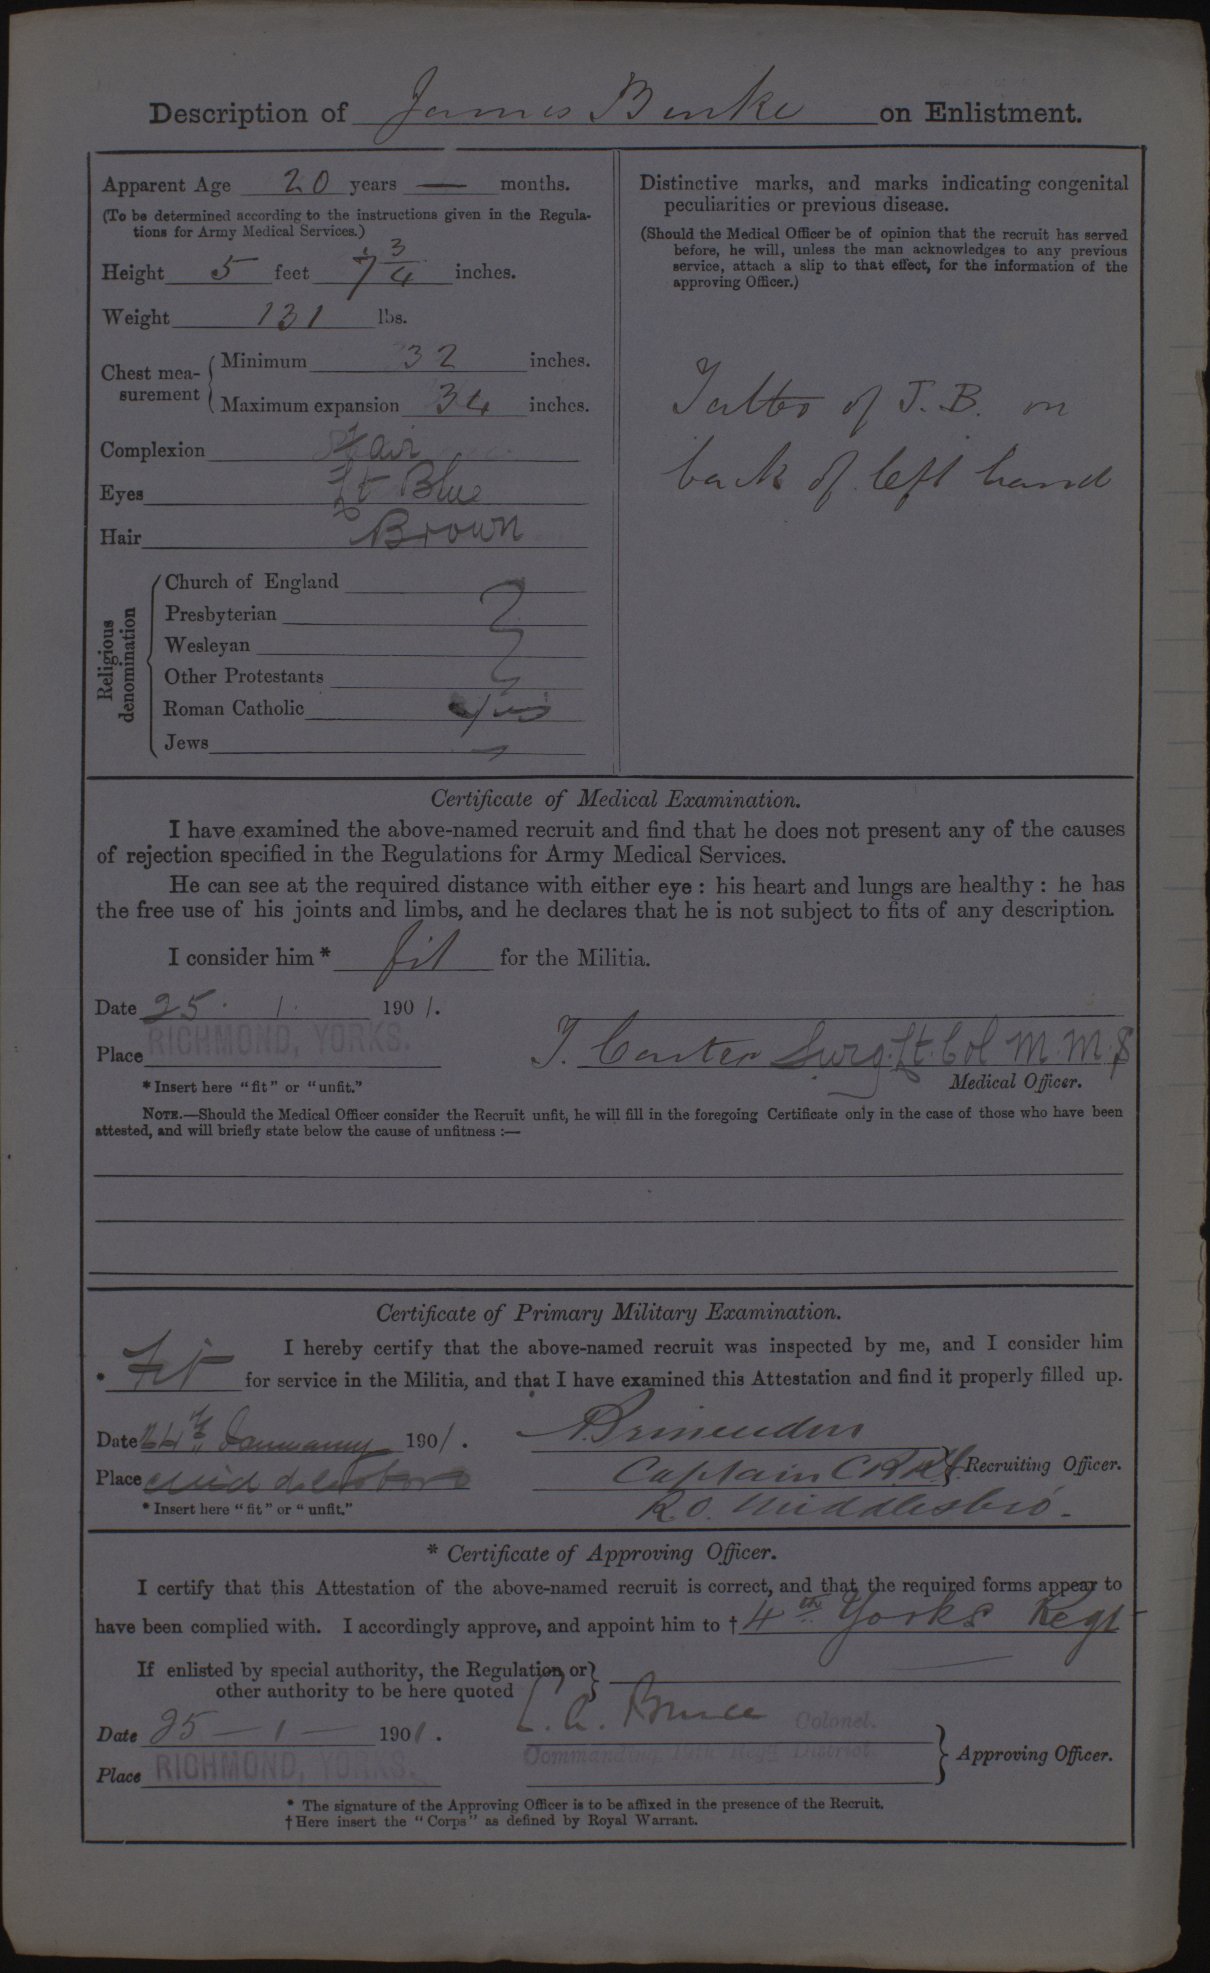 Description of James Burke on Enlistment.
Apparent Age 20 years — months.
(To be determined according to the instructions given in the Regula-
tions for Army Medical Services.)
Height 5 feet 7 3/4 inches.
Weight 131 lbs.
Chest mea-
surement
Minimum 32 inches.
Maximum expansion 34 inches.
Complexion Fair
Eyes Lt Blue
Hair Brown
Religious
denomination
Church of England
Presbyterian
Wesleyan
Other Protestants
Roman Catholic yes
Jews
Distinctive marks, and marks indicating congenital
peculiarities or previous disease.
(Should the Medical Officer be of opinion that the recruit has served
before, he will, unless the man acknowledges to any previous
service, attach a slip to that effect, for the information of the
approving Officer.)
Tattoo of J. B. on
back of left hand
Certificate of Medical Examination.
I have examined the above-named recruit and find that he does not present any of the causes
of rejection specified in the Regulations for Army Medical Services.
He can see at the required distance with either eye : his heart and lungs are healthy : he has
the free use of his joints and limbs, and he declares that he is not subject to fits of any description.
I consider him * fit for the Militia.
Date 25. 1. 1901.
Place RICHMOND, YORKS.
Surg. Lt. Col M. M. S
Medical Officer.
* Insert here "fit" or "unfit."
NOTE.—Should the Medical Officer consider the Recruit unfit, he will fill in the foregoing Certificate only in the case of those who have been
attested, and will briefly state below the cause of unfitness :—
Certificate of Primary Military Examination.
I hereby certify that the above-named recruit was inspected by me, and I consider him
* Fit for service in the Militia, and that I have examined this Attestation and find it properly filled up.
Date 24th January 1901.
Place Middlesboro
Captain
Recruiting Officer.
R.O. Middlesbro.
* Insert here "fit" or "unfit."
* Certificate of Approving Officer.
I certify that this Attestation of the above-named recruit is correct, and that the required forms appear to
have been complied with. I accordingly approve, and appoint him to † 4th Yorks Regt
If enlisted by special authority, the Regulation or
other authority to be here quoted
Date 25 — 1 — 1901.
Place RICHMOND, YORKS.
Bruce Colonel.
Commanding 19th Regtl District.
Approving Officer.
* The signature of the Approving Officer is to be affixed in the presence of the Recruit.
† Here insert the "Corps" as defined by Royal Warrant.